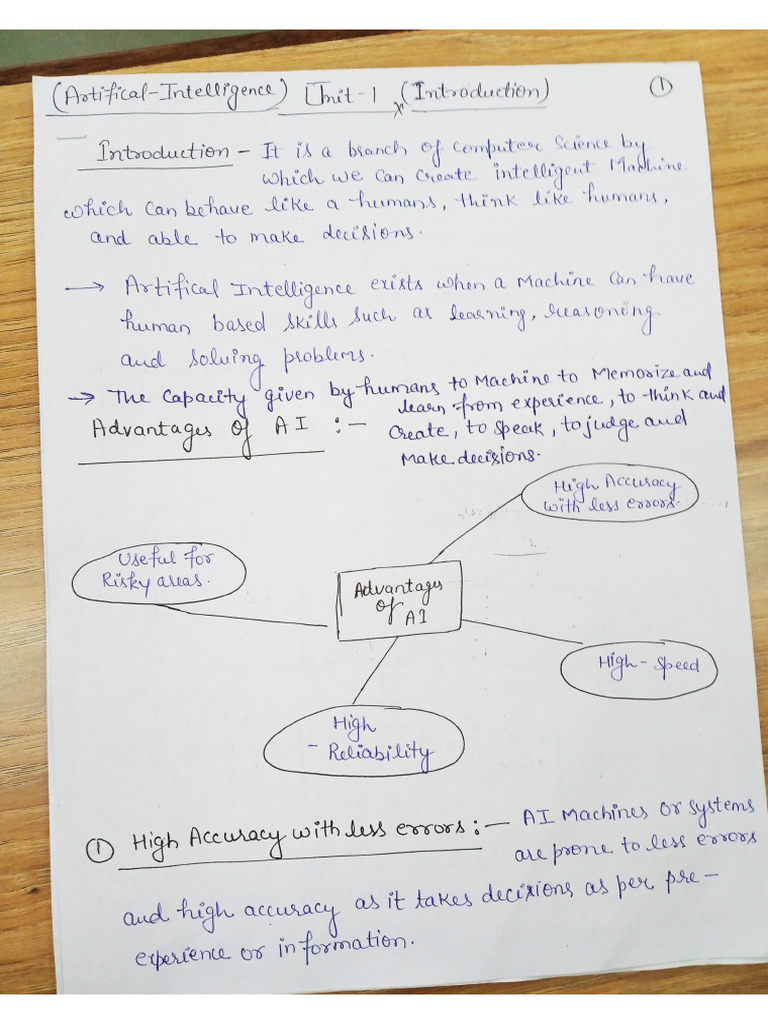 (Artifical-Intelligence) Unit-1 (Introduction) 1
Introduction - It is a branch of computer science by
which we can create intelligent Machine
which can behave like a humans, think like humans,
and able to make decisions.
→ Artifical Intelligence exists when a Machine can have
human based skills such as learning, reasoning
and solving problems.
→ The capacity given by humans to Machine to Memorize and
learn from experience, to think and
Advantages of AI :- create, to speak, to judge and
Make decisions.
High Accuracy
with less errors.
Useful for
Risky areas.
Advantages
of
AI
High - Speed
High
- Reliability
1 High Accuracy with less errors :- AI Machines or systems
are prone to less errors
and high accuracy as it takes decisions as per pre-
experience or information.